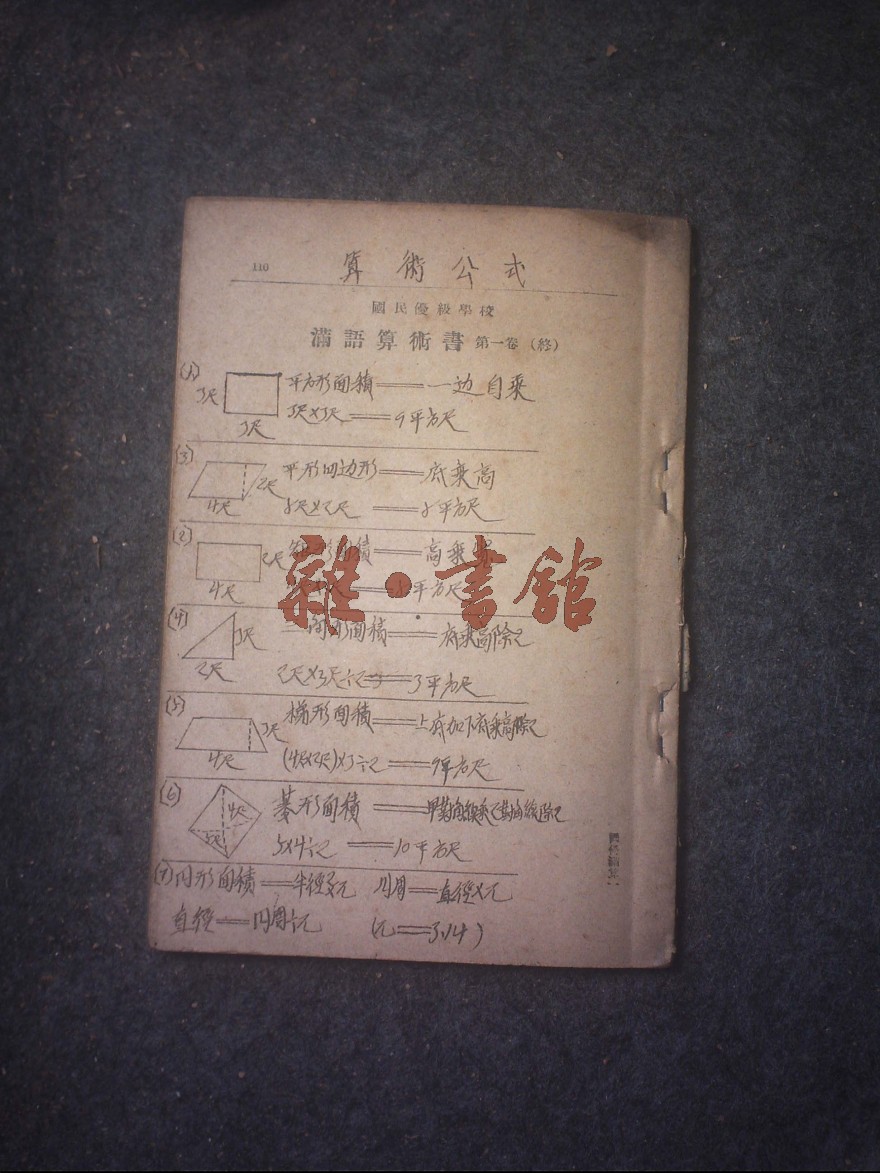 110
算術公式
國民優級學校
滿語算術書 第一卷 (終)
(1)
3尺
3尺
平方形面積＝一边自乘
3尺×3尺＝9平方尺
(3)
2尺
4尺
平形四边形＝底乘高
尺×2尺＝8平方尺
(2)
2尺
4尺
形面積＝高乘
平方尺
雜·書館
(4)
3尺
2尺
三角形面積＝底乘高除2
2尺×3尺÷2＝3平方尺
(5)
3尺
4尺
梯形面積＝上底加下底乘高除2
(4尺×2尺)×3÷2＝9平方尺
(6)
4尺
5尺
形面積＝甲對角線乘乙對角線除2
5×4÷2＝10平方尺
(7) 円形面積＝半徑 円周＝直徑×π
直徑＝円周÷π (π＝3.14)